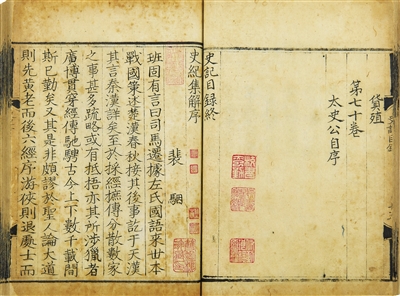 貨殖
第七十卷
太史公自序
史記目錄終
史紀集解序
裴駰
班固有言曰司馬遷據左氏國語采世本
戰國策述楚漢春秋接其後事訖于天漢
其言秦漢詳矣至於採經摭傳分散數家
之事甚多疏略或有抵捂亦其所涉獵者
廣博貫穿經傳馳騁古今上下數千載間
斯已勤矣又其是非頗謬於聖人論大道
則先黃老而後六經序游俠則退處士而